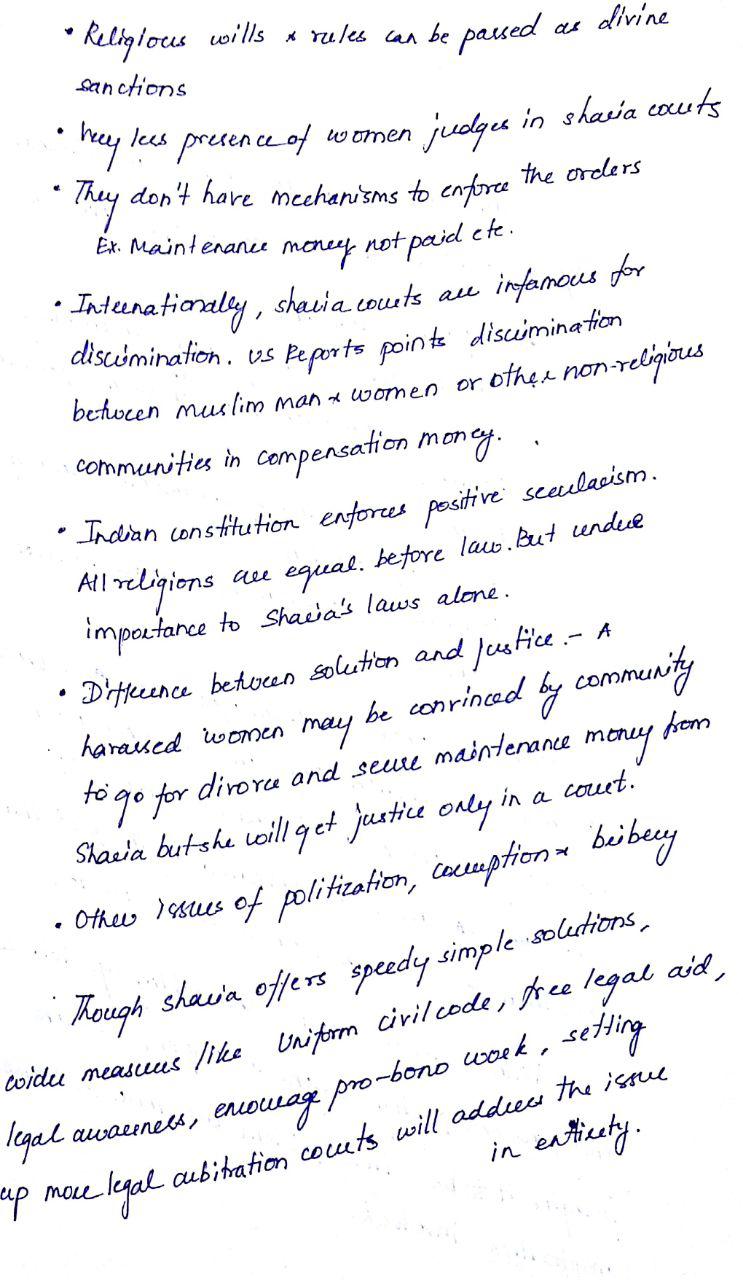 • Religious wills & rules can be passed as divine
sanctions
• Very less presence of women judges in sharia courts
• They don't have mechanisms to enforce the orders
Ex. Maintenance money not paid etc.
• Internationally, sharia courts are infamous for
discrimination. US Reports points discrimination
between muslim man & women or other non-religious
communities in compensation money.
• Indian constitution enforces positive secularism.
All religions are equal. before law. But undue
importance to Sharia's laws alone.
• Difference between solution and justice. - A
harassed women may be convinced by community
to go for divorce and secure maintenance money from
Sharia but she will get justice only in a court.
• Other issues of politization, corruption & bribery
Though sharia offers speedy simple solutions,
wider measures like Uniform civil code, free legal aid,
legal awareness, encourage pro-bono work, setting
up more legal arbitration courts will address the issue
in entirety.